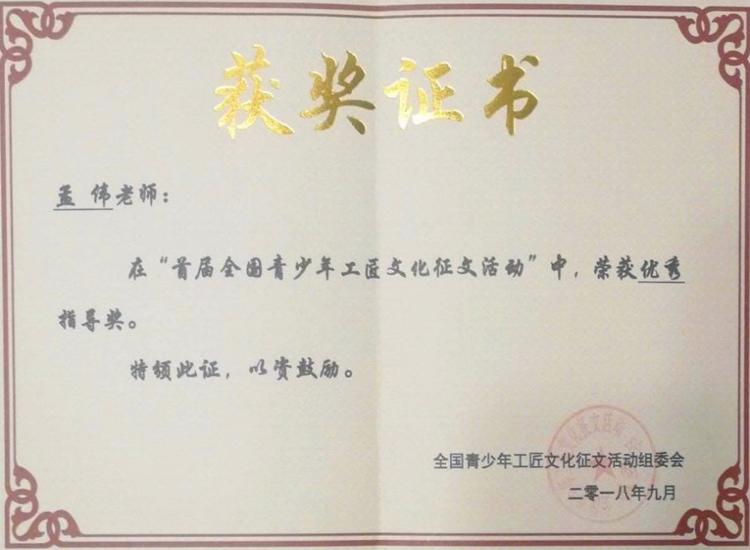 获奖证书
孟 伟老师：
在“首届全国青少年工匠文化征文活动”中，荣获优秀
指导奖。
特颁此证，以资鼓励。
全国青少年工匠文化征文活动组委会
二零一八年九月